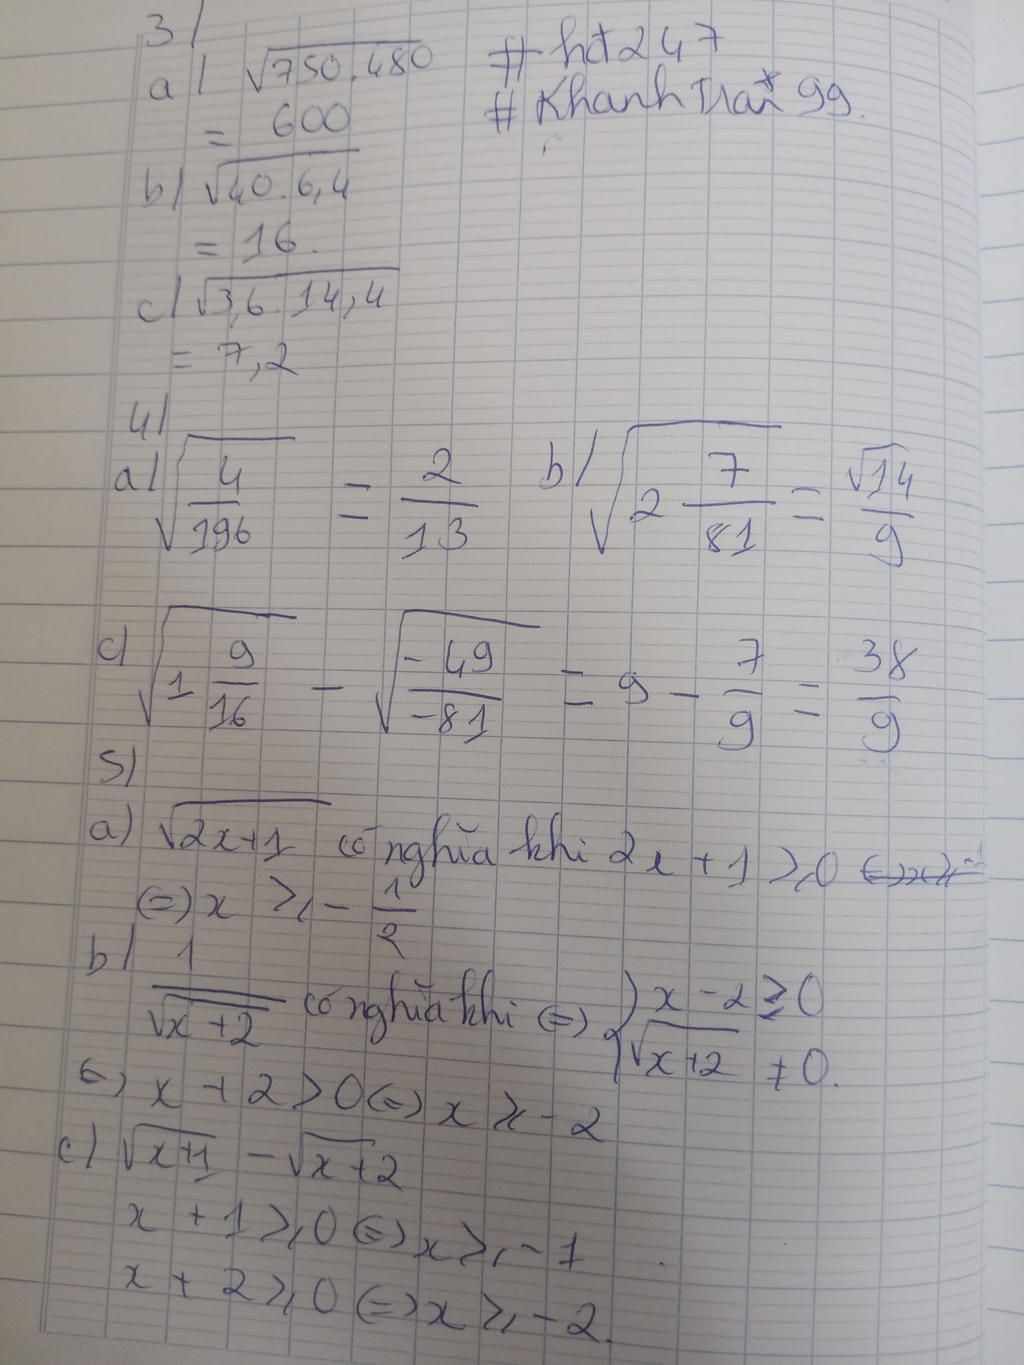 3/
a/ √750.480 # hđ247
= 600 # KhanhTrai*99.
b/ √40.6,4
= 16.
c/ √3,6.14,4
= 7,2
4/
a/ √(4/196) = 2/13 b/ √(2 7/81) = √14/9
c/ √(1 9/16) - √(-49/-81) = 9 - 7/9 = 38/9
5/
a) √2x+1 có nghĩa khi 2x + 1 ⩾ 0
(=) x ⩾ - 1/2
b/ 1/√x+2 có nghĩa khi (=) { x - 2 ≥ 0
√x+2 ≠ 0.
(=) x + 2 > 0 (=) x ⩾ -2
c/ √x+1 - √x+2
x + 1 ⩾ 0 (=) x ⩾ -1
x + 2 ⩾ 0 (=) x ⩾ -2.